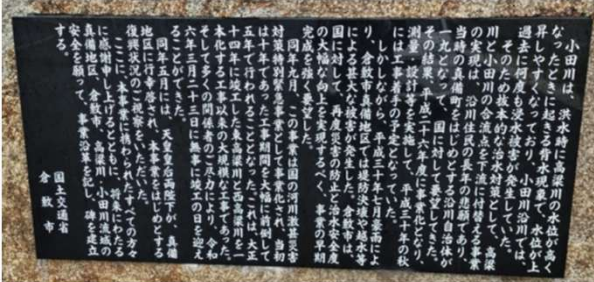 小田川は、洪水時に高梁川の水位が高く
なったときに起きる背水現象で、水位が上
昇しやすくなっており、小田川沿川では、
過去に何度も浸水被害が発生していた。
そのため抜本的な治水対策として、高梁
川と小田川の合流点を下流に付替える事業
の実現は、沿川住民の長年の悲願であり、
当時の真備町をはじめとする沿川自治体が
一丸となって、国に対して要望してきた。
その結果、平成二十六年度に事業化となり、
測量・設計等を実施して、平成三十年の秋
には工事着手の予定となっていた。
しかしながら、平成三十年七月豪雨によ
り、倉敷市真備地区では堤防決壊や越水等
による甚大な被害が発生した。倉敷市は、
国に対して、再度災害の防止と治水安全度
の大幅な向上を実現するべく、事業の早期
完成を強く要望した。
同年九月、この事業は国の河川激甚災害
対策特別緊急事業として事業化され、当初
は十年であった工事期間を大幅に前倒しして
五年で行われることとなった。これは、大正
十四年に竣工した東高梁川と西高梁川を一
本化する工事以来の大規模な工事であった。
そして多くの関係者のご尽力により、令和
六年三月二十三日に無事に竣工の日を迎え
ることができた。
同年五月には、天皇皇后両陛下が、真備
地区に行幸啓され、本事業をはじめとする
復興状況をご視察をいただいた。
ここに、本事業に携わられたすべての方々
に感謝申し上げるとともに、将来にわたる
真備地区、倉敷市、高梁川・小田川流域の
安全を願って、事業沿革を記し、碑を建立
する。
国土交通省
倉敷市